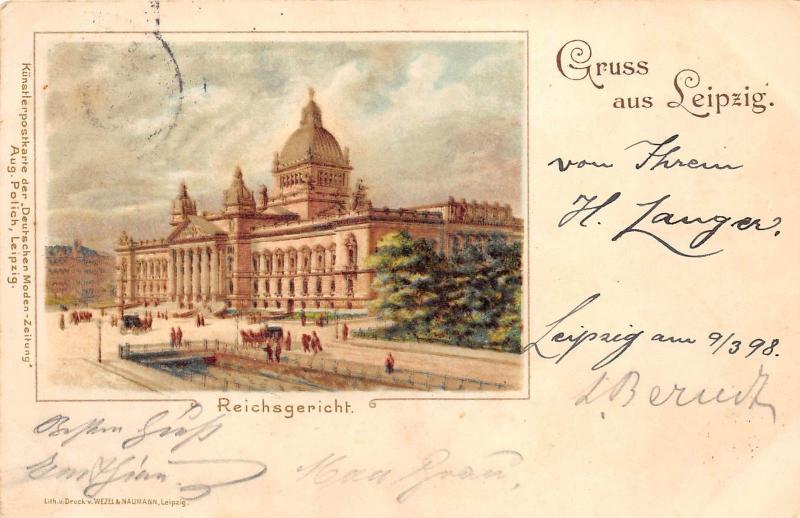 Gruss
aus Leipzig.
von Ihrem
H. Langer.
Leipzig am 9/3 98.
Berndt
Künstlerpostkarte der „Deutschen Moden-Zeitung“
Aug. Polich, Leipzig.
Reichsgericht.
Besten Gruß
Max
Lith. u. Druck v. WEZEL & NAUMANN, Leipzig.